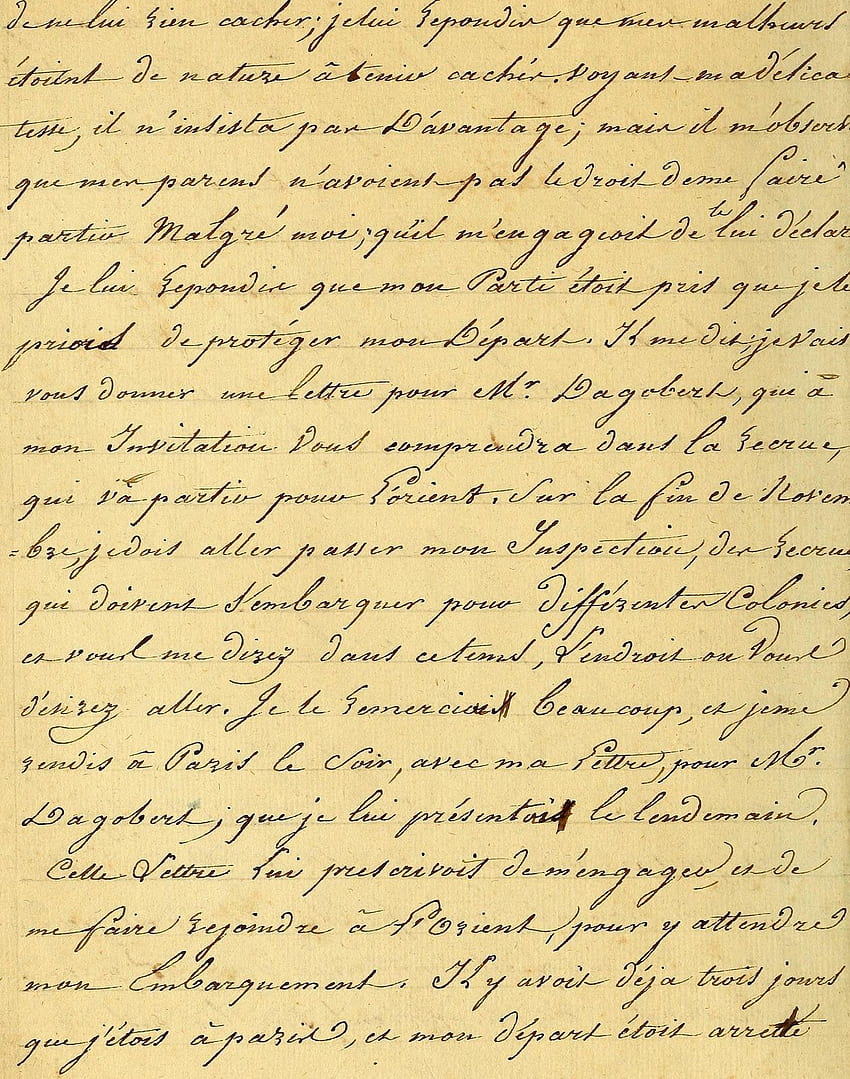 de ne lui rien cacher; je lui repondis que mes malheurs
étoient de nature à tenir cachés. voyant ma délica
tesse, il n'insista pas D'avantage; mais il m'observ
que mes parens n'avoient pas le droit de me faire
partir Malgré moi; qu'il m'engageoit de te lui déclar
Je lui repondis que mon Parti étoit pris que je le
priois de protéger mon Départ. Il me dit; je vais
vous donner une lettre pour Mr. Dagobert, qui à
mon Invitation Vous comprendra dans la recrue,
qui va partir pour L'orient. Sur la fin de Novem
=bre, je dois aller passer mon Inspection, des recrue
qui doivent s'embarquer pour différentes Colonies,
et vous me direz dans ce tems, L'endroit ou Vous
désirez aller. Je le remerciai beaucoup, et je me
rendis à Paris le Soir, avec ma Lettre, pour Mr.
Dagobert; que je lui présentois le lendemain.
Cette Lettre Lui prescrivoit de m'engager, et de
me faire rejoindre à L'Orient, pour y attendre
mon Embarquement. Il y avoit déja trois jours
que j'étois à paris, et mon départ étoit arretté